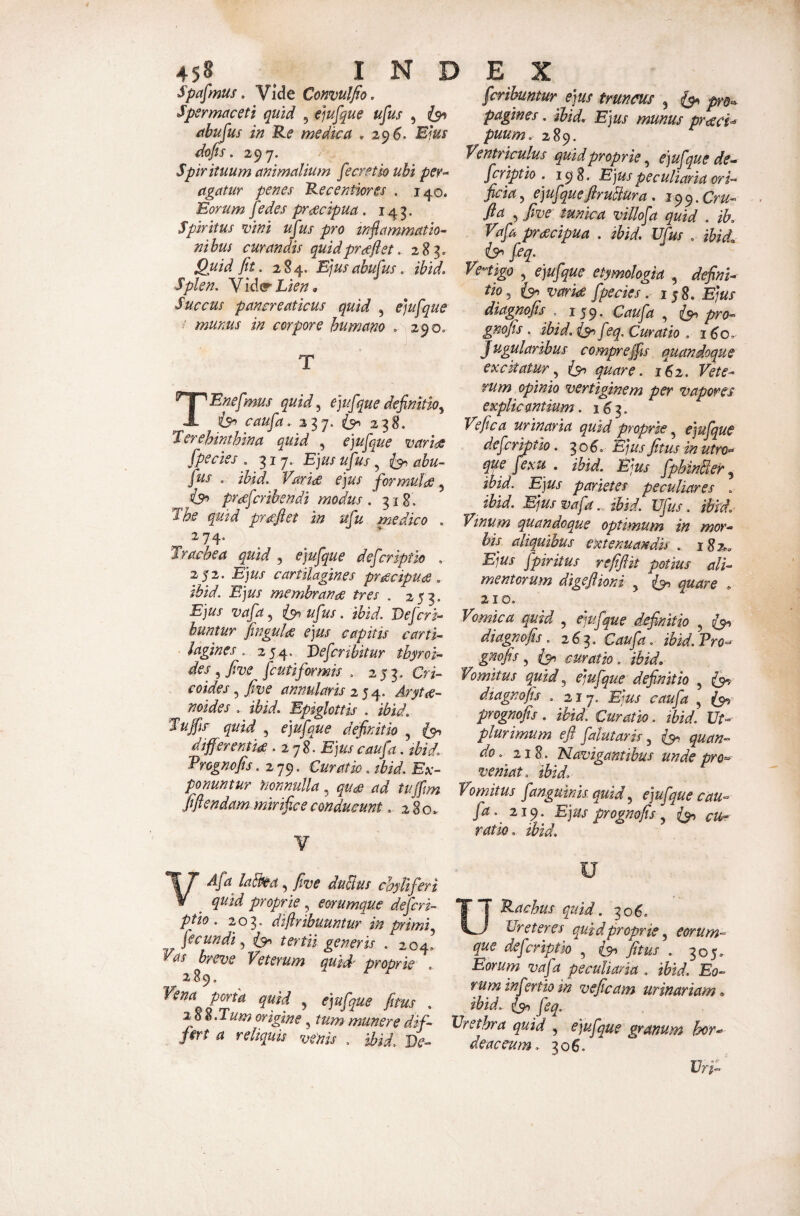 458 INDEX
Spaſmus. Vide Convulſio.
Spermaceti quid , ejuſque uſus , &
abuſus in Re medica . 296. Ejus
doſis. 297.
Spirituum animalium ſecretio ubi per-
agatur penes Recentiores . 140.
Eorum ſedes præcipua. 143.
Spiritus vini uſus pro inflammatio-
nibus curandis quid præſtet. 283.
Quid ſit. 284. Ejus abuſus. ibid.
Splen. Vide Lien.
Succus pancreaticus quid , ejuſque
munus in corpore humano . 290.
T
TEneſmus quid, ejuſque definitio,
& cauſa. 237. & 238.
Terebinthina quid , ejuſque variæ
ſpecies . 317. Ejus uſus, & abu-
ſus . ibid. Variæ ejus formulæ,
& præſcribendi modus. 318.
The quid præſtet in uſu medico .
274.
Trachea quid , ejuſque deſcriptio .
252. Ejus cartilagines præcipuæ.
ibid. Ejus membranæ tres . 253.
Ejus vaſa, & uſus. ibid. Deſcri-
buntur ſingulæ ejus capitis carti-
lagines. 254. Deſcribitur thyroi-
des, ſive ſcutiformis . 253. Cri-
coides, ſive annularis 254. Arytæ-
noides . ibid. Epiglottis . ibid.
Tuſſis quid , ejuſque definitio , &
differentiæ. 278. Ejus cauſa. ibid.
Prognoſis. 279. Curatio. ibid. Ex-
ponuntur nonnulla, quæ ad tuſſim
ſiſtendam mirifice conducunt. 280.
V
VAſa lactea, ſive ductus chyliferi
quid proprie, eorumque deſcri-
ptio. 203. diſtribuuntur in primi,
ſecundi, & tertii generis . 204.
Vas breve Veterum quid proprie .
289.
Vena porta quid , ejuſque ſitus .
288. Tum origine, tum munere dif-
fert a reliquis venis . ibid. De-
ſcribuntur ejus truncus , & pro-
pagines. ibid. Ejus munus præci-
puum. 289.
Ventriculus quid proprie, ejuſque de-
ſcriptio. 198. Ejus peculiaria ori-
ficia, ejuſque ſtructura. 199. Cru-
ſta , ſive tunica villoſa quid . ib.
Vaſa præcipua . ibid. Uſus . ibid.
& ſeq.
Vertigo , ejuſque etymologia , defini-
tio, & variæ ſpecies. 158. Ejus
diagnoſis . 159. Cauſa , & pro-
gnoſis. ibid. & ſeq. Curatio . 160.
Jugularibus compreſſis quandoque
excitatur, & quare. 162. Vete-
rum opinio vertiginem per vapores
explicantium. 163.
Veſica urinaria quid proprie, ejuſque
deſcriptio. 306. Ejus ſitus in utro-
que ſexu . ibid. Ejus ſphincter,
ibid. Ejus parietes peculiares .
ibid. Ejus vaſa. ibid. Uſus. ibid.
Vinum quandoque optimum in mor-
bis aliquibus extenuandis . 182.
Ejus ſpiritus reſiſtit potius ali-
mentorum digeſtioni , & quare .
210.
Vomica quid , ejuſque definitio , &
diagnoſis. 263. Cauſa. ibid. Pro-
gnoſis, & curatio. ibid.
Vomitus quid, ejuſque definitio , &
diagnoſis . 217. Ejus cauſa , &
prognoſis. ibid. Curatio. ibid. Ut-
plurimum eſt ſalutaris, & quan-
do. 218. Navigantibus unde pro-
veniat. ibid.
Vomitus ſanguinis quid, ejuſque cau-
ſa. 219. Ejus prognoſis, & cu-
ratio. ibid.
U
URachus quid. 306.
Ureteres quid proprie, eorum-
que deſcriptio , & ſitus . 305.
Eorum vaſa peculiaria . ibid. Eo-
rum inſertio in veſicam urinariam.
ibid. & ſeq.
Urethra quid , ejuſque granum hor-
deaceum. 306.
Uri-